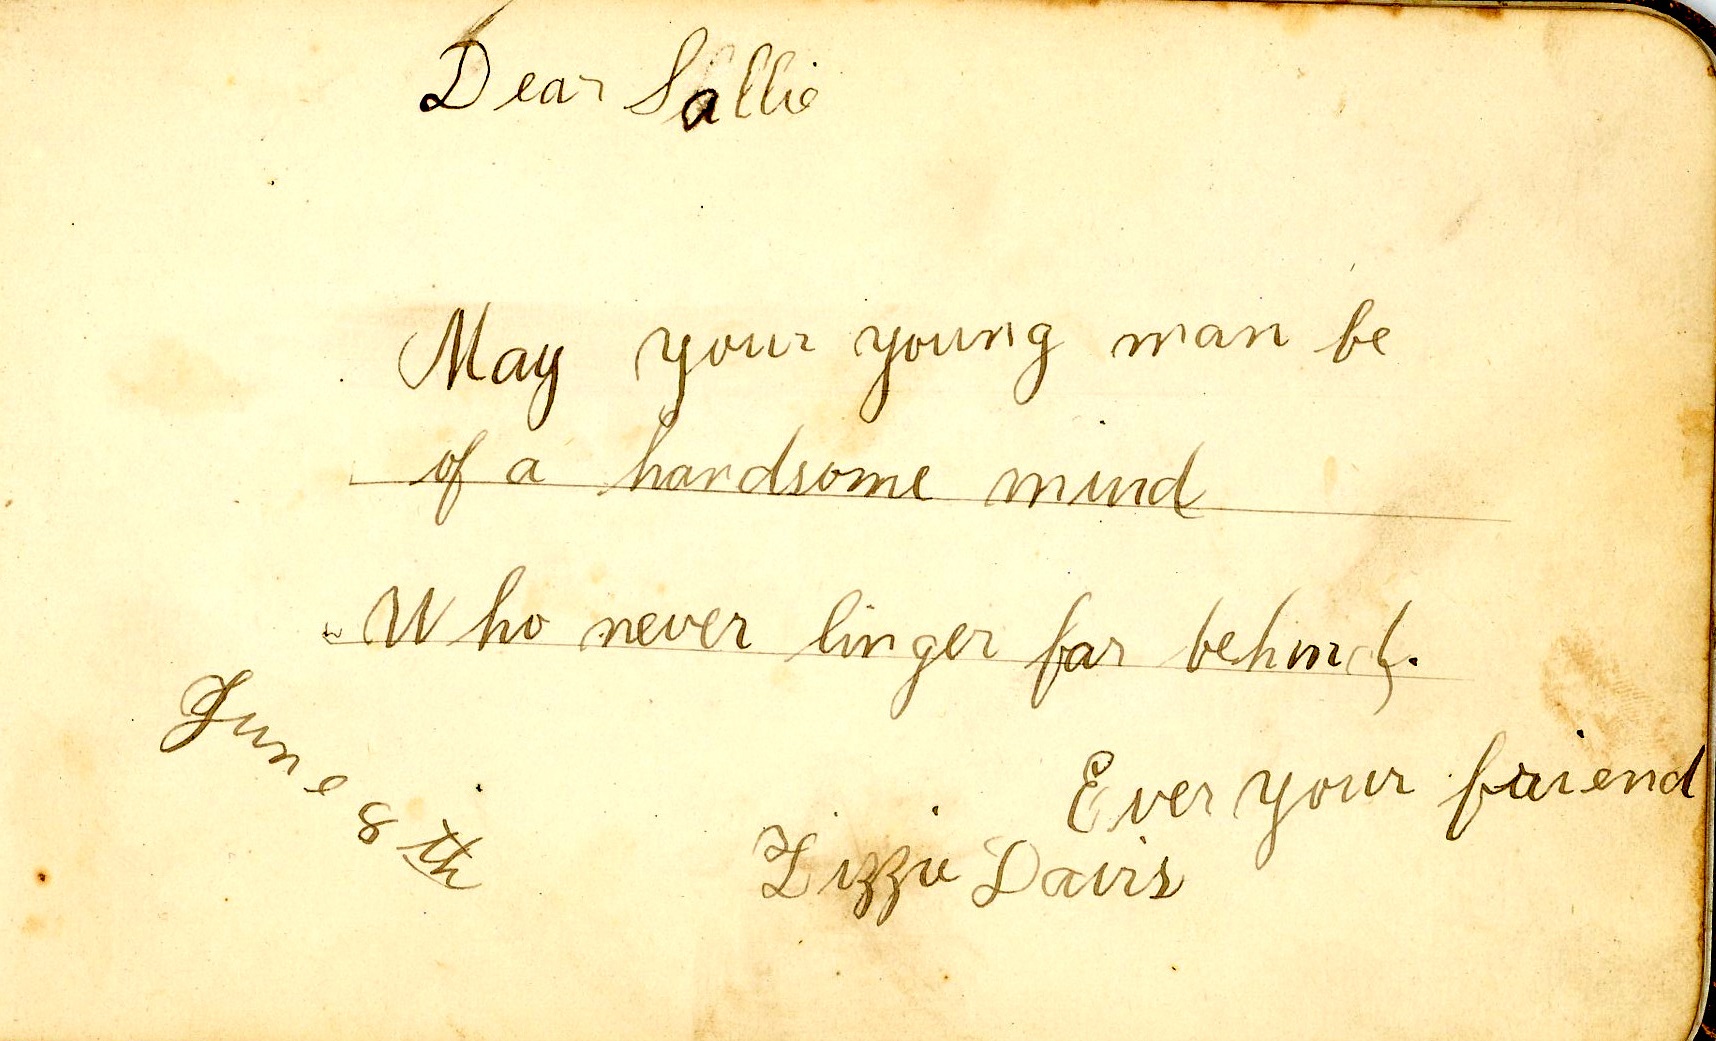 Dear Sallie
May your young man be
of a handsome mind
Who never linger far behind.
June 8th
Ever your friend
Lizzie Davis